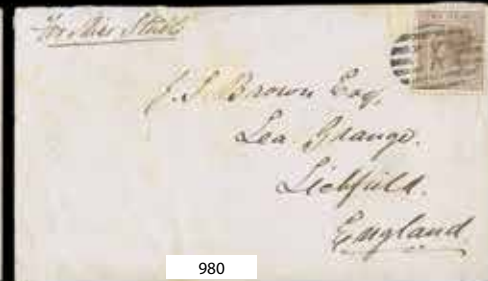 J. S. Brown Esq,
Lea Grange.
Lichfield.
England
K
980